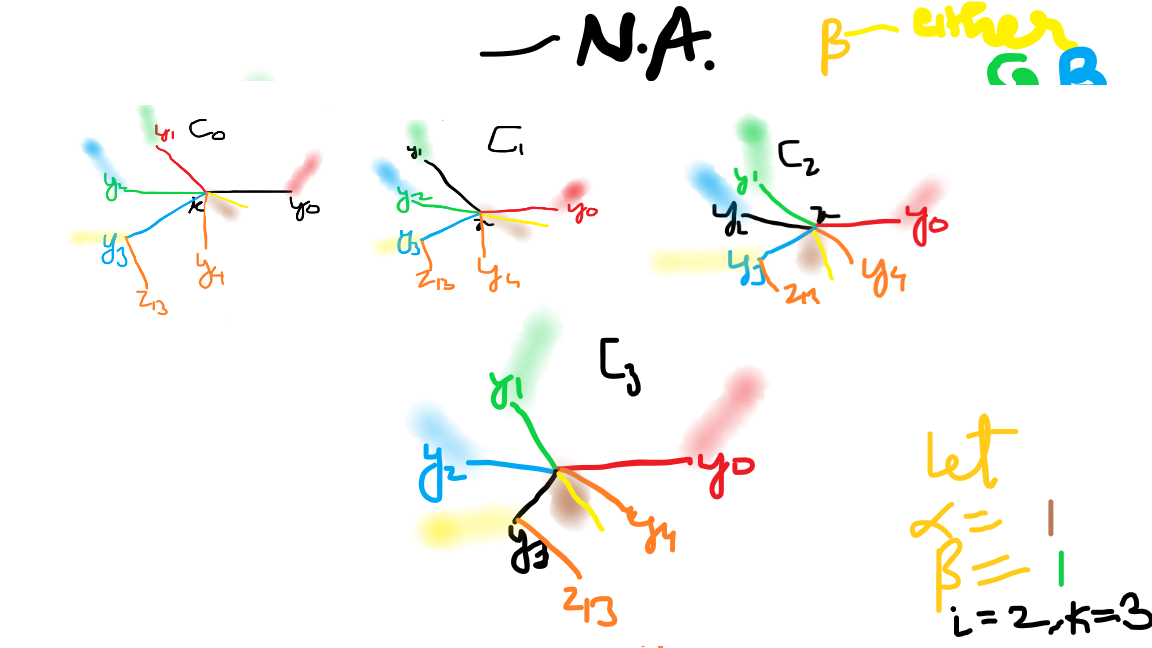 — N.A.
β — either
G B
C0
y1
y2
x
y0
y3
y4
z13
C1
y1
y2
x
y0
y3
z13
y4
C2
y1
y2
x
y0
y3
z13
y4
C3
y1
y2
y0
y3
y4
z13
Let
α = |
β = |
i=2, k=3